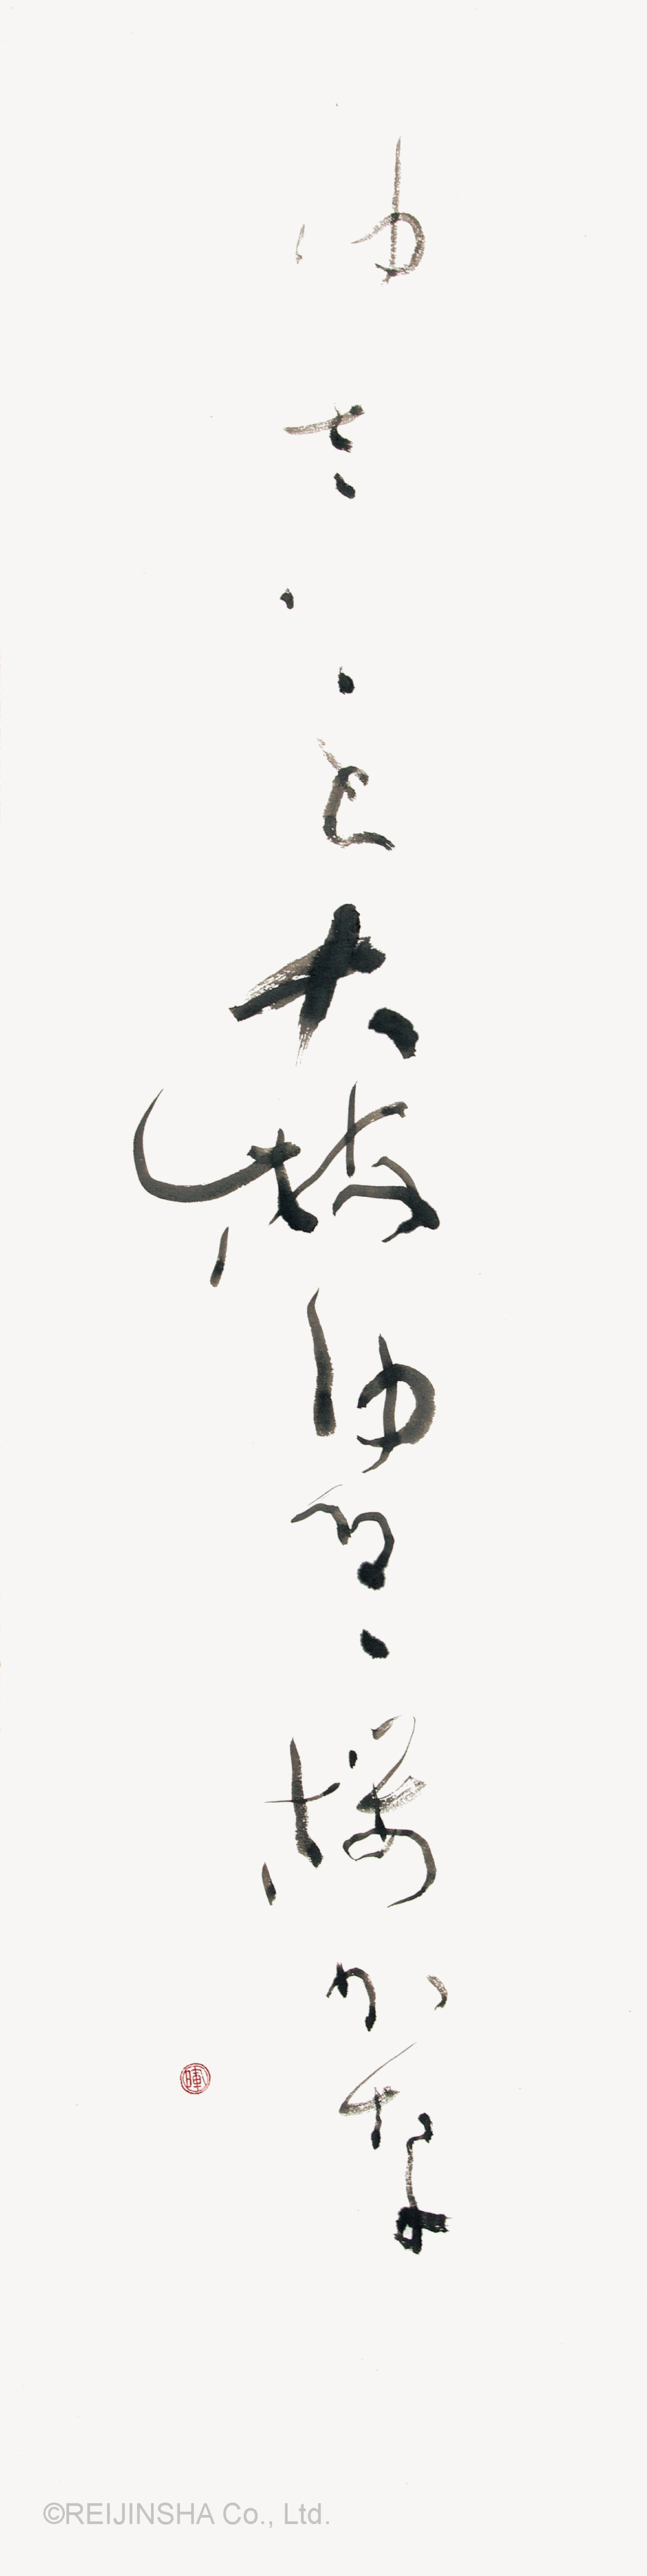 ゆさ〱と大枝ゆるゝ桜かな
暉
©REIJINSHA Co., Ltd.